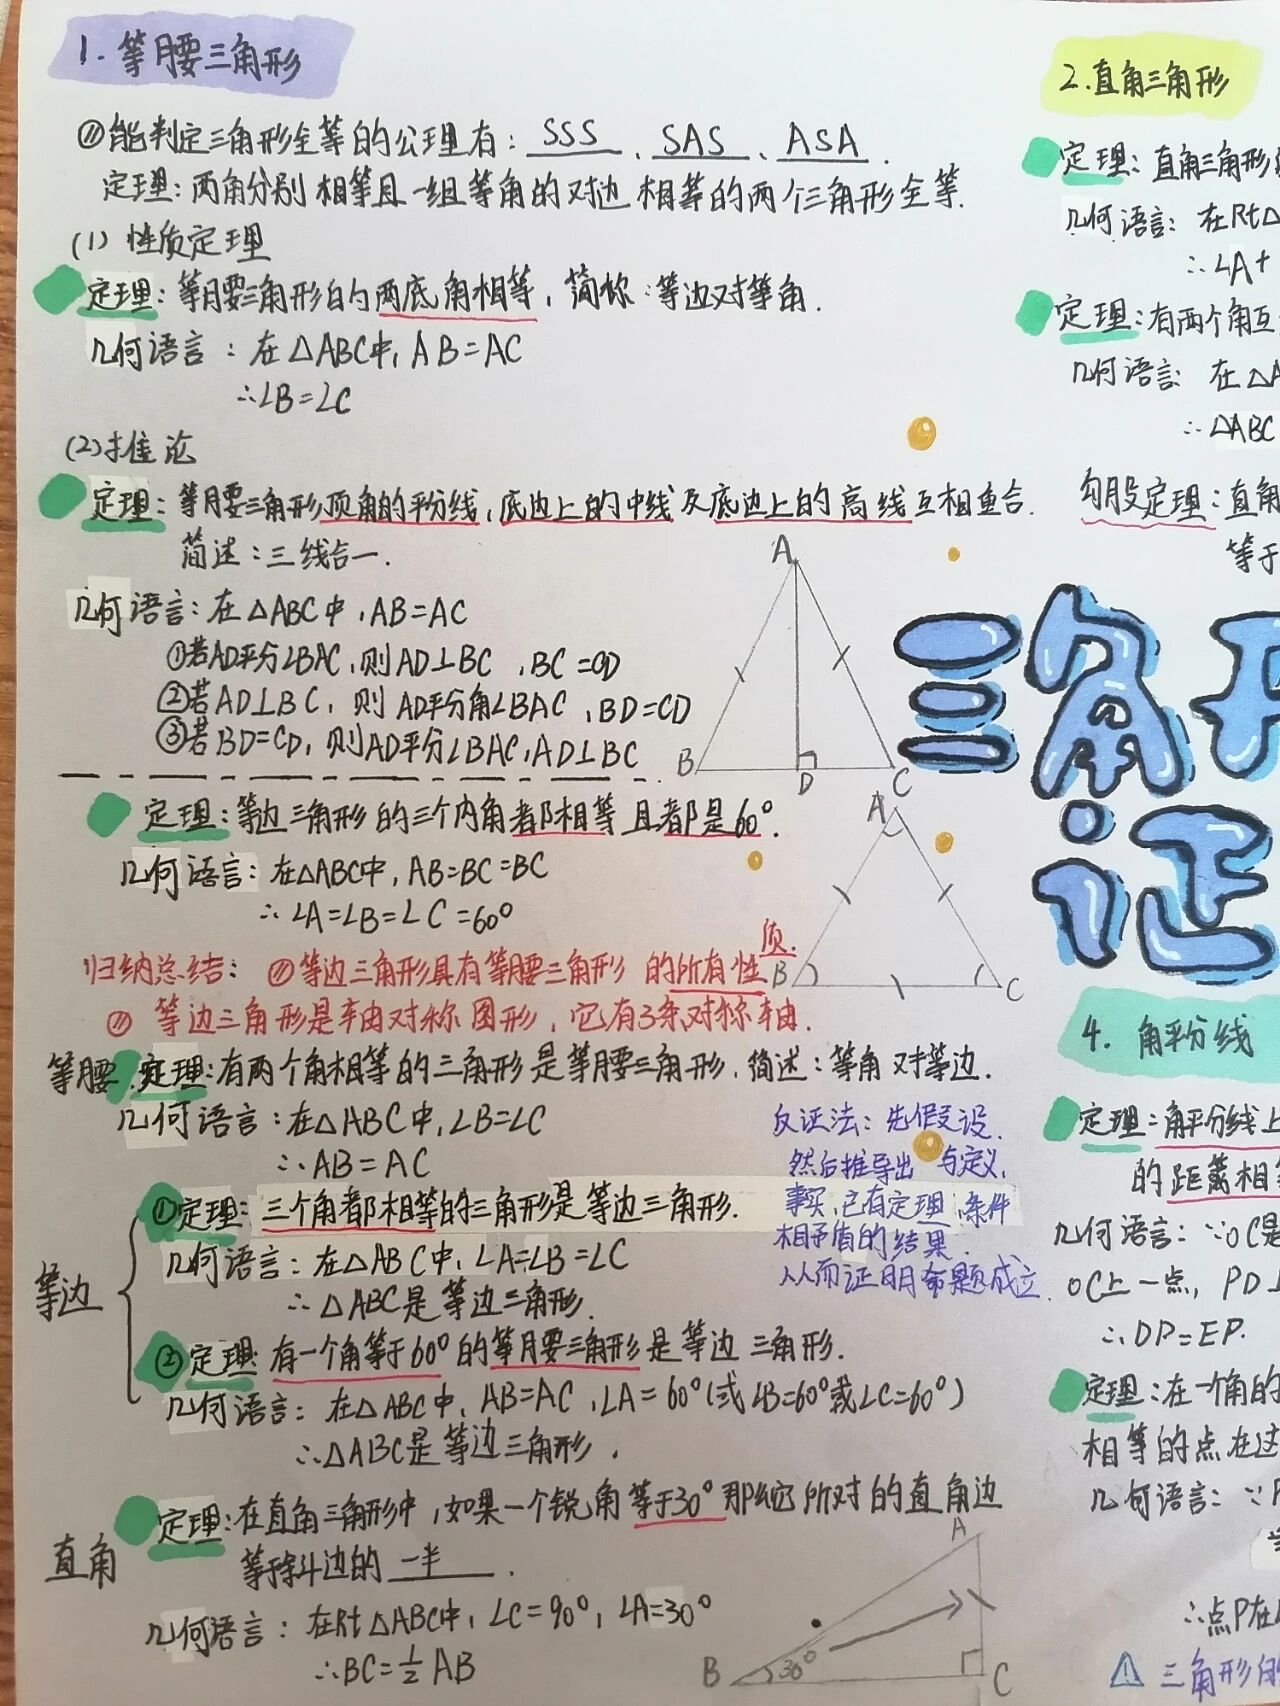 1. 等腰三角形
(1)能判定三角形全等的公理有: SSS 、 SAS 、 ASA .
定理:两角分别相等且一组等角的对边相等的两个三角形全等.
(1) 性质定理
定理:等腰三角形的两底角相等,简称:等边对等角.
几何语言:在△ABC中,AB=AC
∴∠B=∠C
(2)推论
定理:等腰三角形顶角的平分线,底边上的中线及底边上的高线互相重合.
简述:三线合一.
几何语言:在△ABC中,AB=AC
①若AD平分∠BAC,则AD⊥BC ,BC=CD
②若AD⊥BC,则AD平分角∠BAC,BD=CD
③若BD=CD,则AD平分∠BAC,AD⊥BC
A
B
D
C
定理:等边三角形的三个内角都相等且都是60°.
几何语言:在△ABC中,AB=BC=BC
∴∠A=∠B=∠C=60°
A
B
C
归纳总结: (1)等边三角形具有等腰三角形的所有性质.
(1) 等边三角形是轴对称图形,它有3条对称轴.
等腰.定理:有两个角相等的三角形是等腰三角形.简述:等角对等边.
几何语言:在△ABC中,∠B=∠C
∴AB=AC
等边
①定理:三个角都相等的三角形是等边三角形.
几何语言:在△ABC中,∠A=∠B=∠C
∴△ABC是等边三角形.
②定理:有一个角等于60°的等腰三角形是等边三角形.
几何语言:在△ABC中,AB=AC,∠A=60°(或∠B=60°或∠C=60°)
∴△ABC是等边三角形.
反证法:先假设.
然后推导出与定义,
事实,已有定理,条件
相矛盾的结果.
从而证明命题成立.
直角
定理:在直角三角形中,如果一个锐角等于30°那么它所对的直角边
等于斜边的 一半 .
几何语言:在Rt△ABC中,∠C=90°,∠A=30°
∴BC=½AB
A
B
30°
C
2.直角三角形
定理:直角三角形
几何语言:在Rt△
∴∠A+
定理:有两个角互
几何语言:在△A
∴△ABC
勾股定理:直角
等于
三角形
证
4. 角平分线
定理:角平分线上
的距离相等
几何语言:∵OC是
OC上一点,PD⊥
∴DP=EP.
定理:在一个角的
相等的点在这
几何语言:∵
∴点P在
三角形的